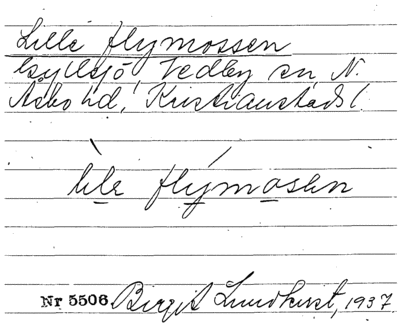 Lille flymossen
Gyllsjö, Vedby sn, N.
Åsbo hd, Kristianstads l.
lìle flýmosen
Nr 5506 Birgit Lundkvist, 1937